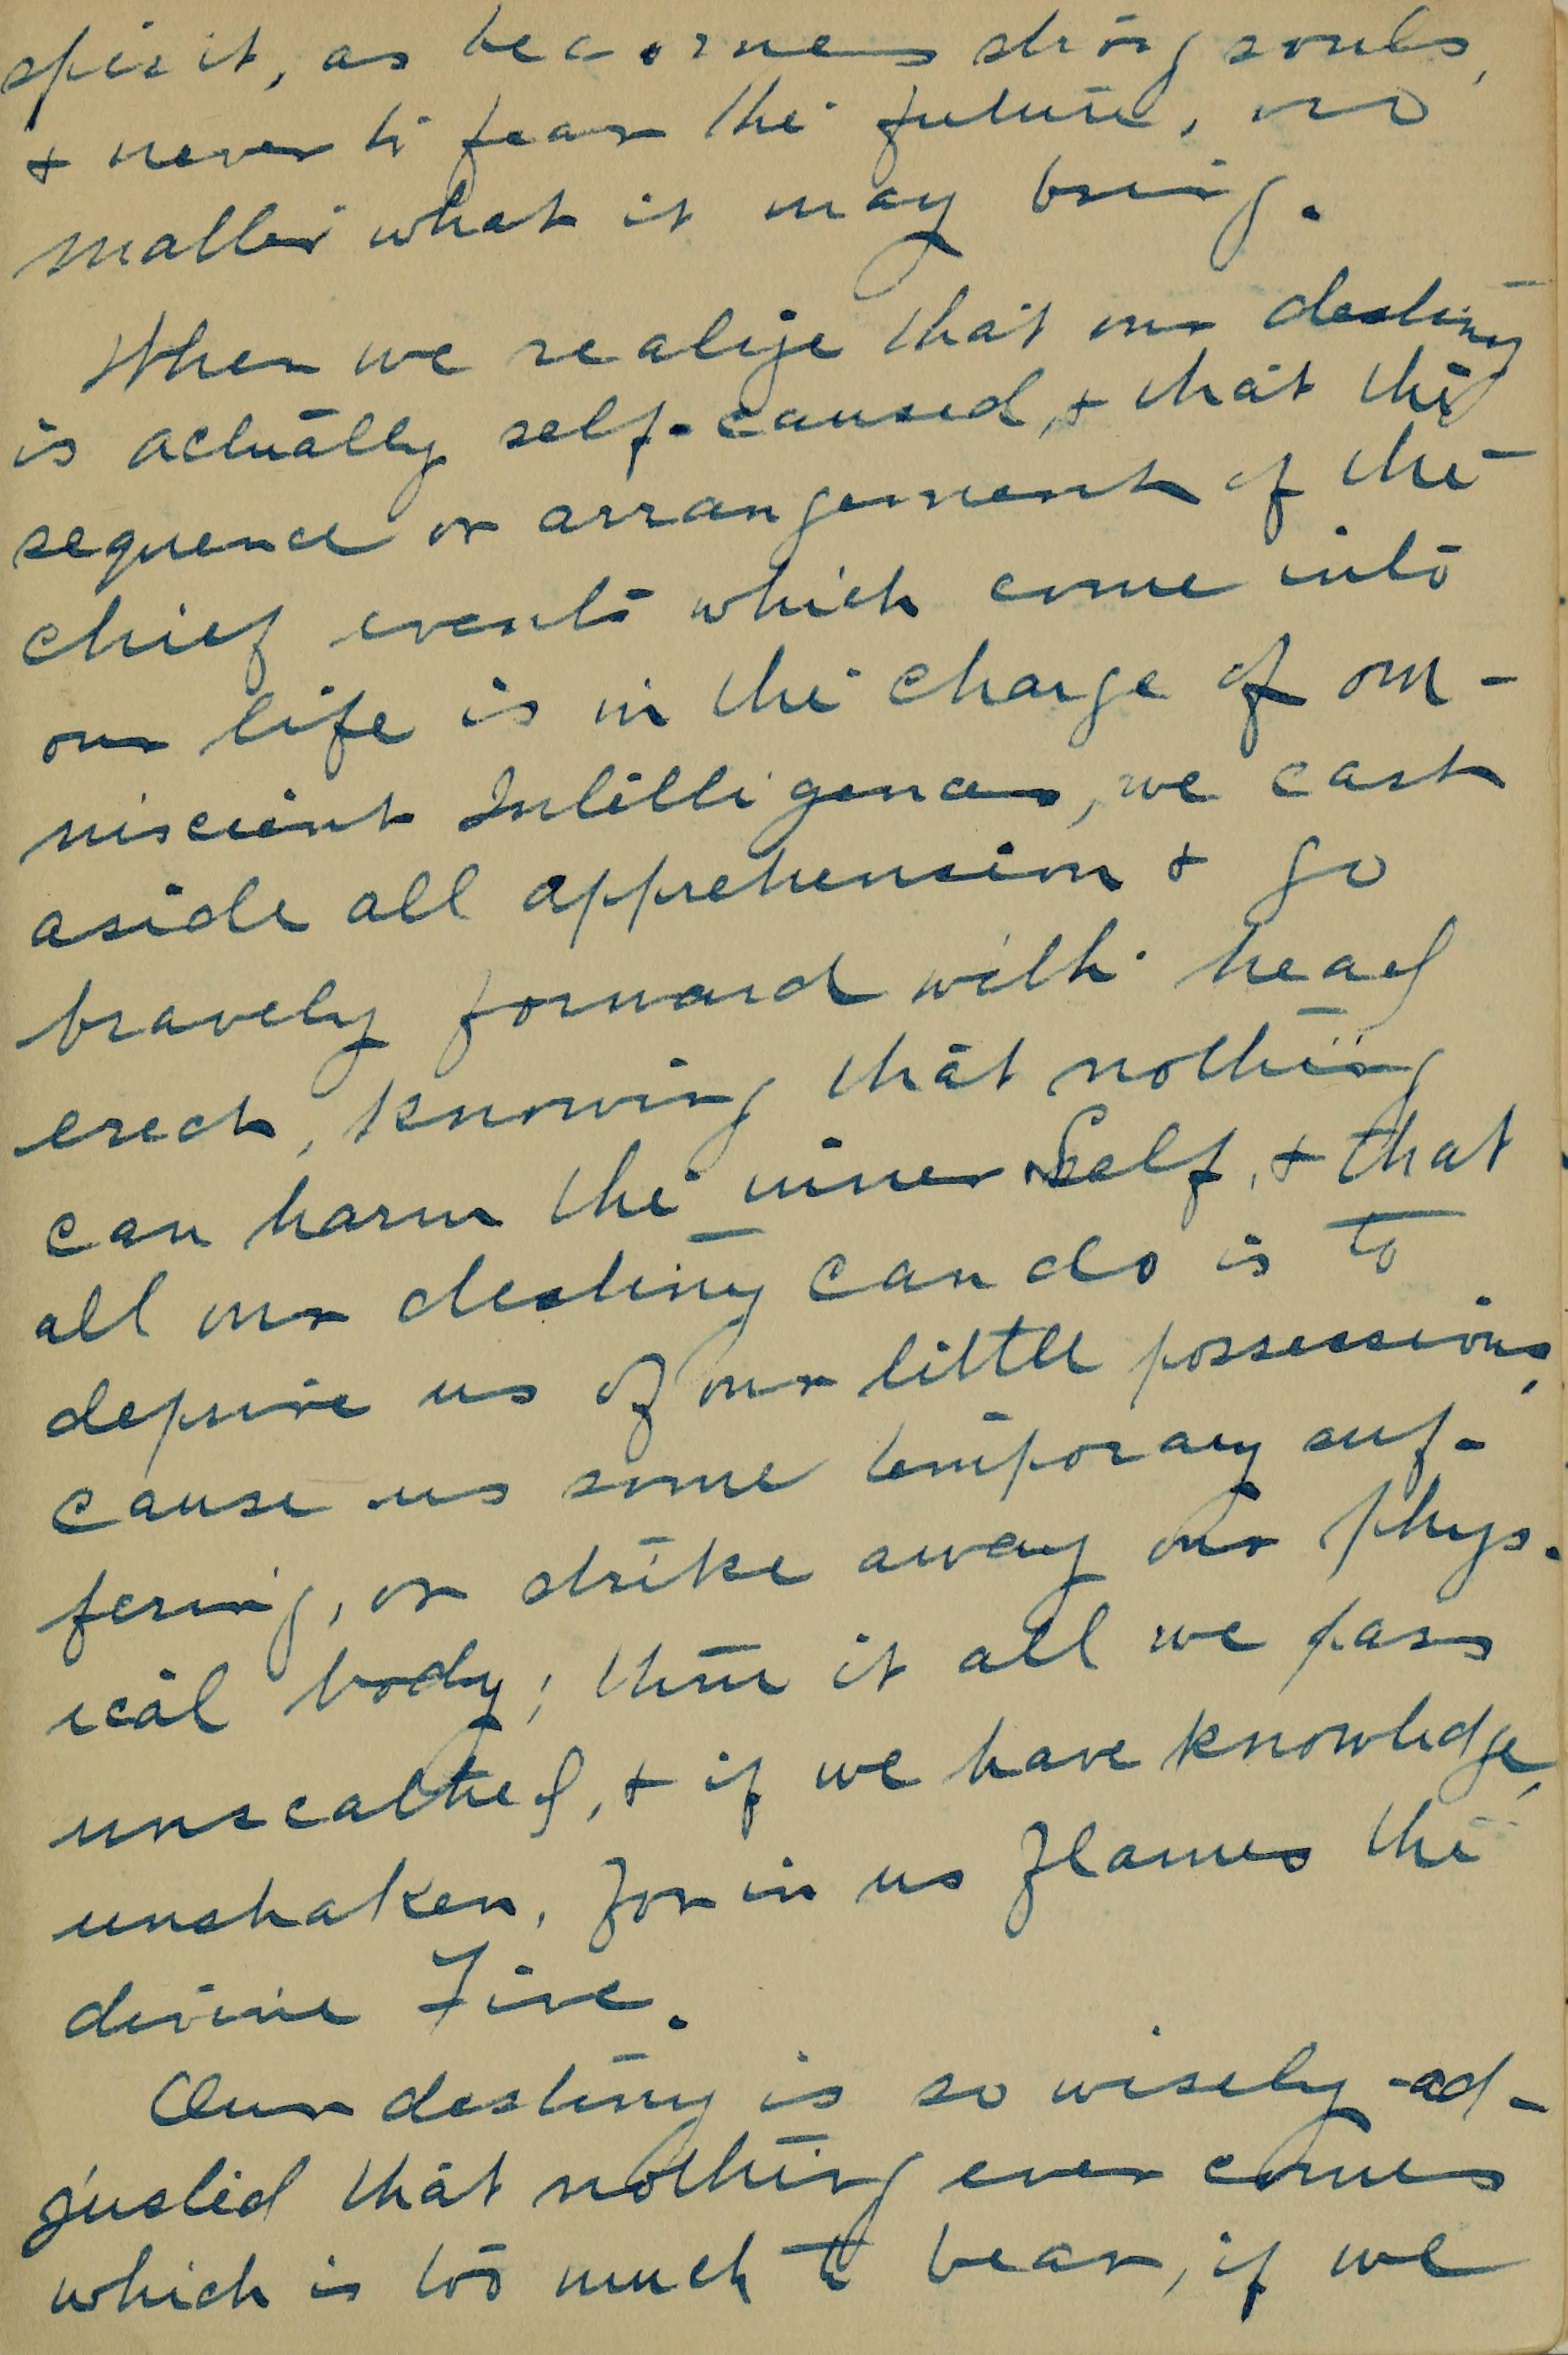 spirit, as becomes strong souls,
& never to fear the future, no
matter what it may bring.
When we realize that our destiny
is actually self-caused, & that the
sequence or arrangement of the
chief events which come into
our life is in the charge of om-
niscient Intelligences, we cast
aside all apprehension & go
bravely forward with head
erect, knowing that nothing
can harm the inner Self, & that
all our destiny can do is to
deprive us of our little possessions,
cause us some temporary suf-
fering, or strike away our phys-
ical body; thru it all we pass
unscathed, & if we have knowledge,
unshaken, for in us flames the
divine Fire.
Our destiny is so wisely ad-
justed that nothing ever comes
which is too much to bear, if we